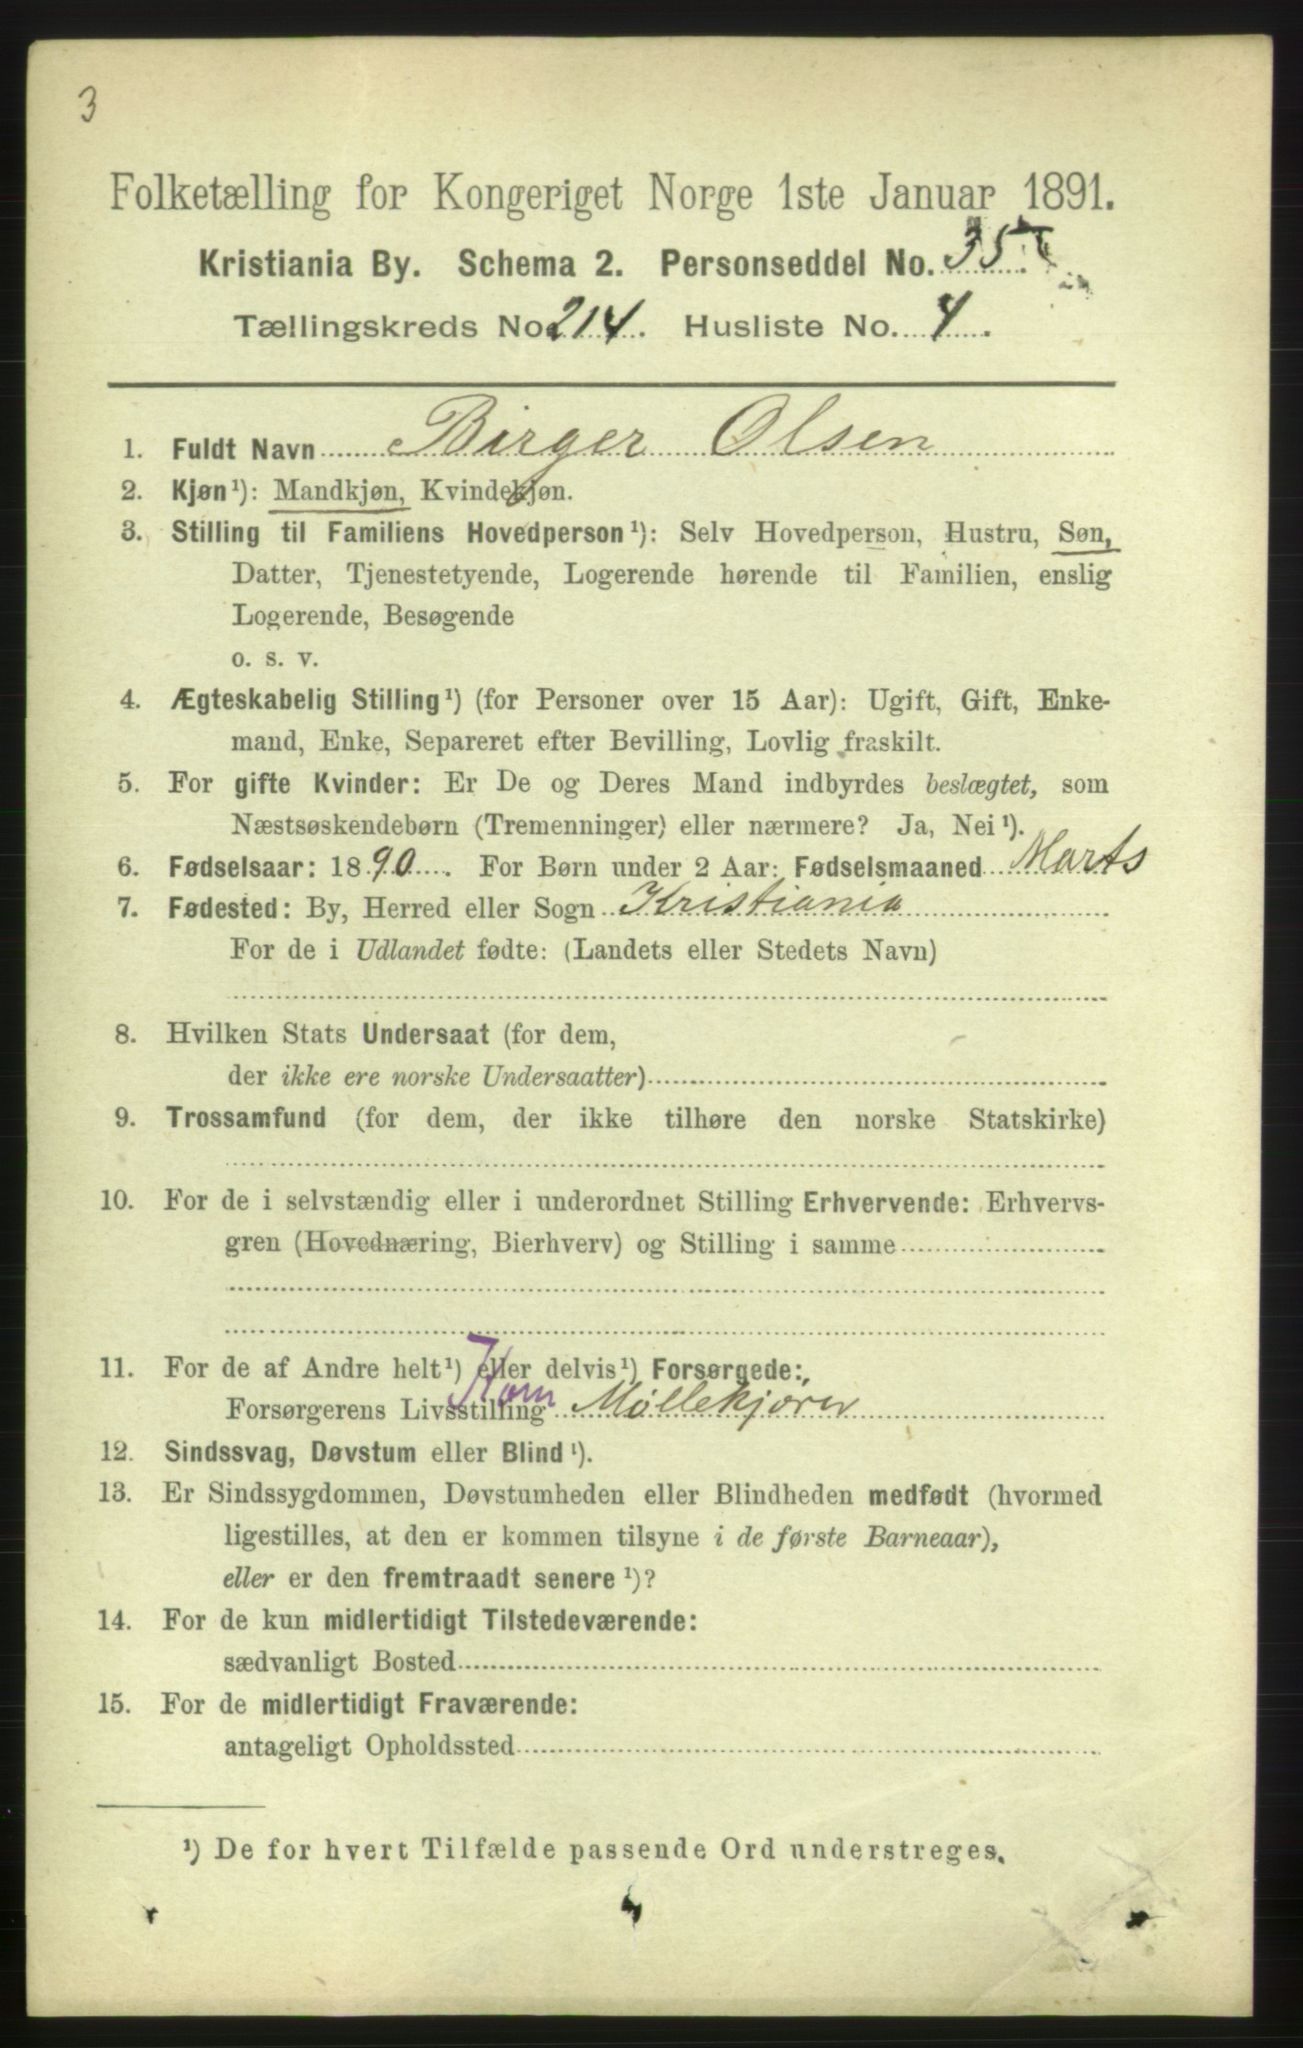 3
Folketælling for Kongeriget Norge 1ste Januar 1891.
Kristiania By. Schema 2. Personseddel No. 35.
Tællingskreds No. 214. Husliste No. 4.
1. Fuldt Navn Birger Olsen
2. Kjøn¹): Mandkjøn, Kvindekjøn.
3. Stilling til Familiens Hovedperson¹): Selv Hovedperson, Hustru, Søn,
Datter, Tjenestetyende, Logerende hørende til Familien, enslig
Logerende, Besøgende
o. s. v.
4. Ægteskabelig Stilling¹) (for Personer over 15 Aar): Ugift, Gift, Enke-
mand, Enke, Separeret efter Bevilling, Lovlig fraskilt.
5. For gifte Kvinder: Er De og Deres Mand indbyrdes beslægtet, som
Næstsøskendebørn (Tremenninger) eller nærmere? Ja, Nei¹).
6. Fødselsaar: 1890. For Børn under 2 Aar: Fødselsmaaned Marts
7. Fødested: By, Herred eller Sogn Kristiania
For de i Udlandet fødte: (Landets eller Stedets Navn)
8. Hvilken Stats Undersaat (for dem,
der ikke ere norske Undersaatter)
9. Trossamfund (for dem, der ikke tilhøre den norske Statskirke)
10. For de i selvstændig eller i underordnet Stilling Erhvervende: Erhvervs-
gren (Hovednæring, Bierhverv) og Stilling i samme
11. For de af Andre helt¹) eller delvis¹) Forsørgede:
Forsørgerens Livsstilling Korn Møllekjører
12. Sindssvag, Døvstum eller Blind¹).
13. Er Sindssygdommen, Døvstumheden eller Blindheden medfødt (hvormed
ligestilles, at den er kommen tilsyne i de første Barneaar),
eller er den fremtraadt senere¹)?
14. For de kun midlertidigt Tilstedeværende:
sædvanligt Bosted
15. For de midlertidigt Fraværende:
antageligt Opholdssted
¹) De for hvert Tilfælde passende Ord understreges.